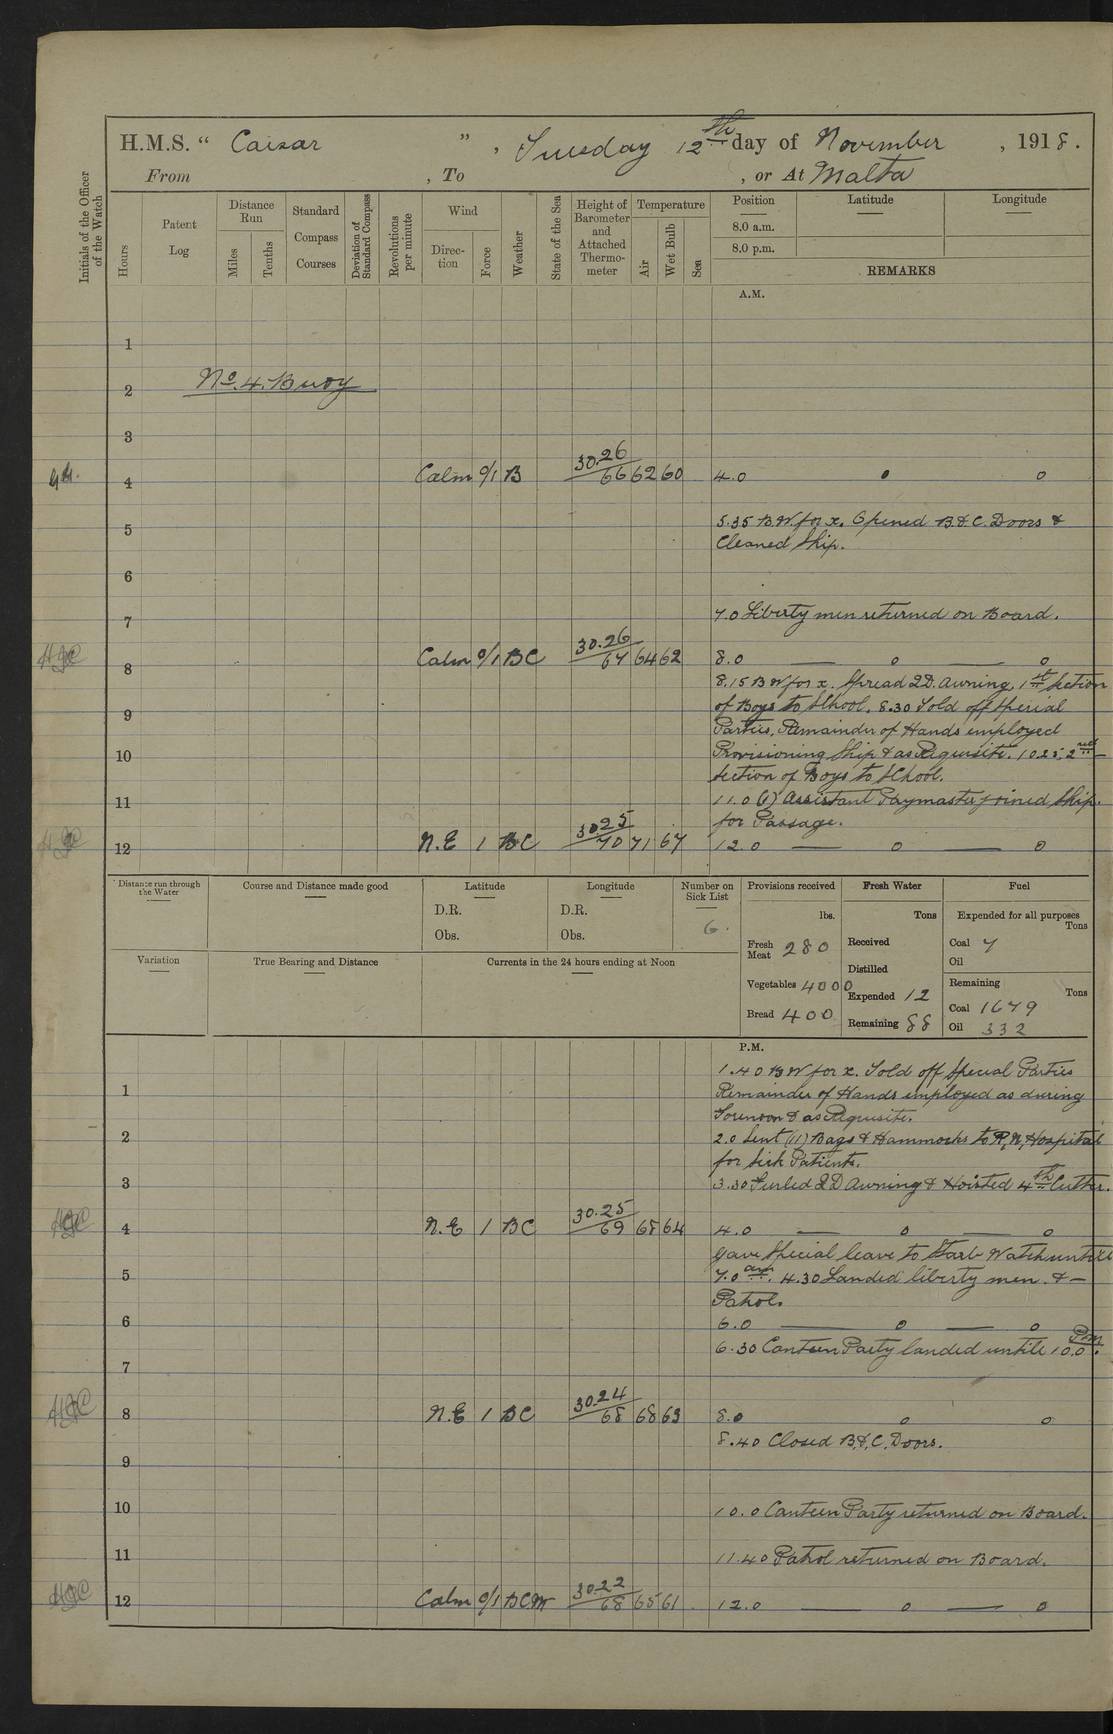 H.M.S. “ Caesar ”, Tuesday 12th day of November, 1918.
From , To , or At Malta
Initials of the Officer of the Watch
Hours
Patent Log
Distance Run
Miles
Tenths
Standard Compass Courses
Deviation of Standard Compass
Revolutions per minute
Wind
Direction
Force
Weather
State of the Sea
Height of Barometer and Attached Thermometer
Temperature
Air
Wet Bulb
Sea
Position
Latitude
Longitude
8.0 a.m.
8.0 p.m.
REMARKS
A.M.
1
No. 4. Buoy
2
3
4 Calm 0/1 B 30.26 66 62 60 4.0 0 0
5 5.35 B.W. for x. Opened B.&.C. Doors &
Cleaned Ship.
6
7 7.0 Liberty men returned on Board.
8 Calm 0/1 BC 30.26 67 64 62 8.0 — 0 — 0
8.15 B W for x. Spread 2D. Awning, 1st Section
9 of Boys to School. 8.30 Told off Special
Parties, Remainder of Hands employed
10 Provisioning Ship & as Requisite. 10.25, 2nd
Section of Boys to School.
11 11.0 (1) Assistant Paymaster joined Ship.
for Passage.
12 N.E 1 BC 30.25 70 71 67 12.0 — 0 — 0
Distance run through the Water
Course and Distance made good
Latitude
D.R.
Obs.
Longitude
D.R.
Obs.
Number on Sick List
6.
Provisions received
lbs.
Fresh Meat 280
Vegetables 4000
Bread 400
Fresh Water
Tons
Received
Distilled
Expended 12
Remaining 88
Fuel
Expended for all purposes
Tons
Coal 7
Oil
Remaining
Tons
Coal 1679
Oil 332
Variation
True Bearing and Distance
Currents in the 24 hours ending at Noon
P.M.
1.40 B W for x. Told off Special Parties
1 Remainder of Hands employed as during
Forenoon & as Requisite.
2 2.0 Sent (11) Bags & Hammocks to R,N, Hospital
for Sick Patients.
3 3.30 Furled 2D Awning & Hoisted 4th Cutter.
4 N.E 1 BC 30.25 69 68 64 4.0 — 0 — 0
Gave Special leave to Starb Watch untill
5 7.0 am. 4.30 Landed liberty men. & —
Patrol.
6 6.0 — 0 — 0
6.30 Canteen Party landed untill 10.0 Pm.
7
8 N.E 1 BC 30.24 68 68 63 8.0 0 0
8.40 Closed B.&.C. Doors.
9
10 10.0 Canteen Party returned on Board.
11 11.40 Patrol returned on Board.
12 Calm 0/1 BCM 30.22 68 65 61 12.0 — 0 — 0